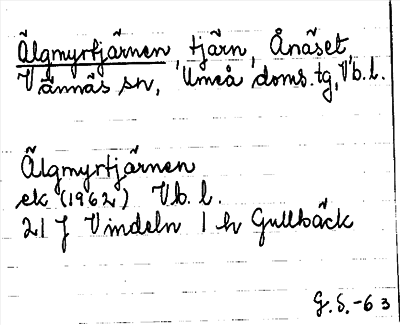 Älgmyrtjärnen, tjärn, Ånäset,
Vännäs sn, Umeå doms.tg, Vb.l.
Älgmyrtjärnen
ek (1962) Vb.l.
21 J Vindeln 1 h Gullbäck
G.S.-63